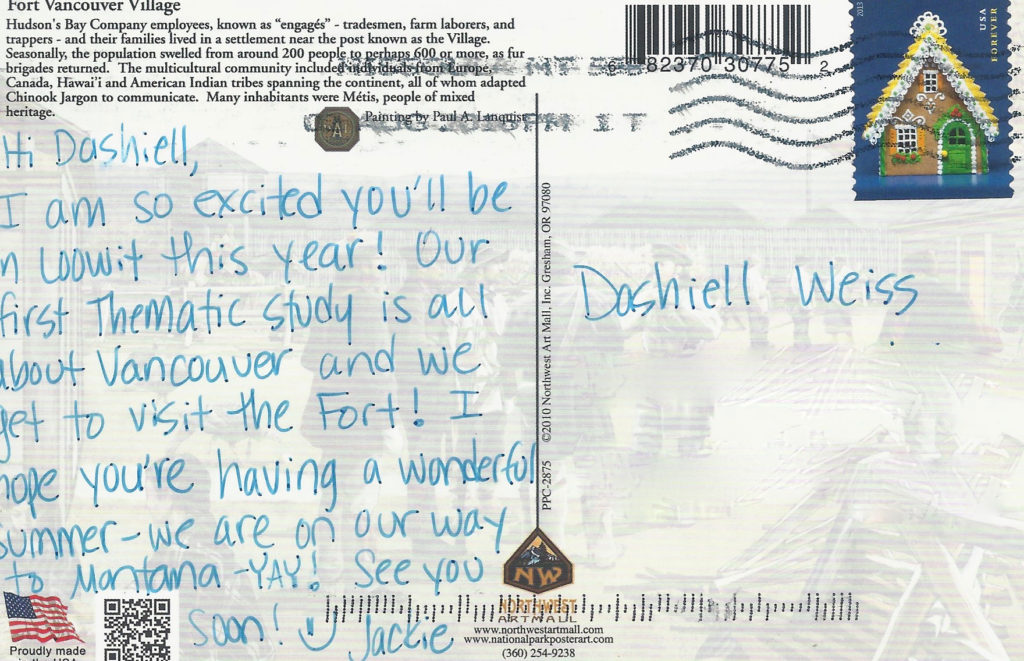 Fort Vancouver Village
Hudson's Bay Company employees, known as “engagés” - tradesmen, farm laborers, and
trappers - and their families lived in a settlement near the post known as the Village.
Seasonally, the population swelled from around 200 people to perhaps 600 or more, as fur
brigades returned. The multicultural community included individuals from Europe,
Canada, Hawai'i and American Indian tribes spanning the continent, all of whom adapted
Chinook Jargon to communicate. Many inhabitants were Métis, people of mixed
heritage.
Painting by Paul A. Lanquist
Hi Dashiell,
I am so excited you'll be
n Loowit this year! Our
first Thematic study is all
about Vancouver and we
get to visit the Fort! I
hope you're having a wonderful
summer - we are on our way
to Montana - YAY! See you
soon! Jackie
Proudly made
in the USA
PPC-2875 ©2010 Northwest Art Mall, Inc. Gresham, OR 97080
NW
NORTHWEST
ARTMALL
www.northwestartmall.com
www.nationalparkposterart.com
(360) 254-9238
6 82370 30775 2
2013
USA
FOREVER
Dashiell Weiss